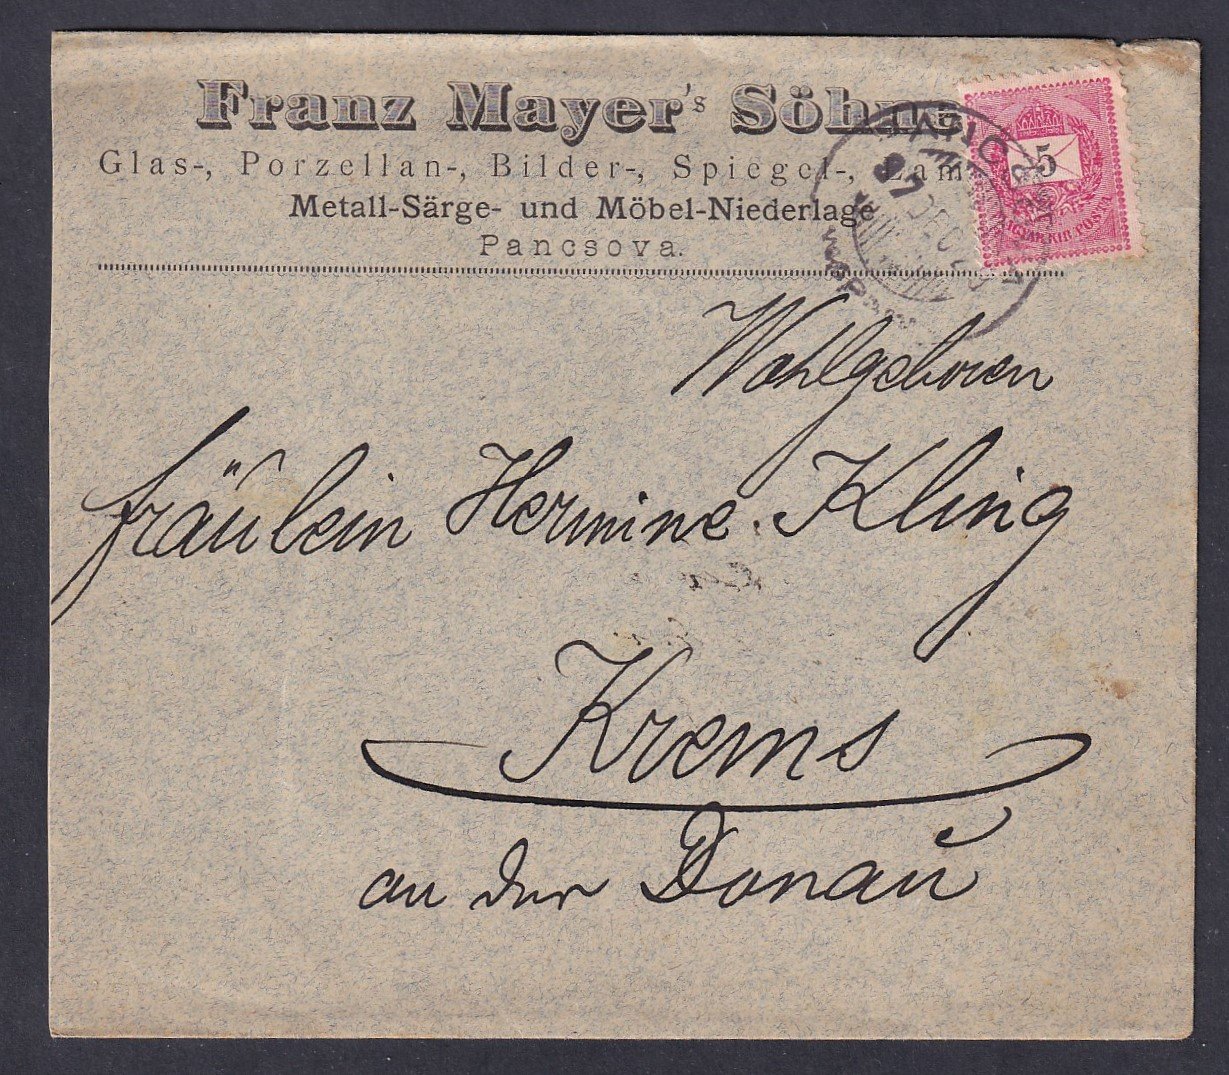 Franz Mayer's Söhne
Glas-, Porzellan-, Bilder-, Spiegel-, Lam
Metall-Särge- und Möbel-Niederlage
Pancsova.
5
MAGYAR KIR. POSTA
97
DEC
Wohlgeboren
Fräulein Hermine Kling
Krems
an der Donau